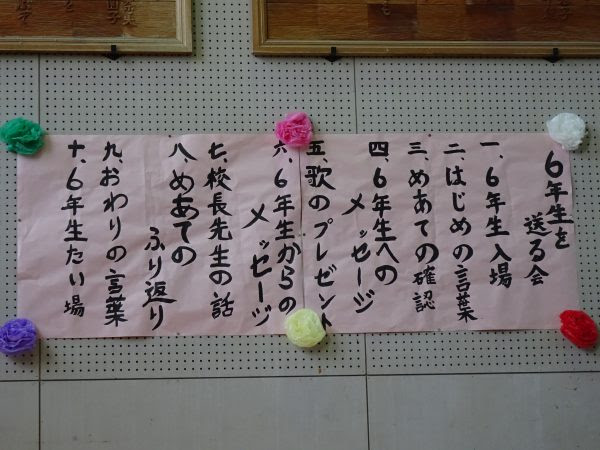 6年生を
送る会
一、6年生入場
二、はじめの言葉
三、めあての確認
四、6年生への
メッセージ
五、歌のプレゼント
六、6年生からの
メッセージ
七、校長先生の話
八、めあての
ふり返り
九、おわりの言葉
十、6年生たい場